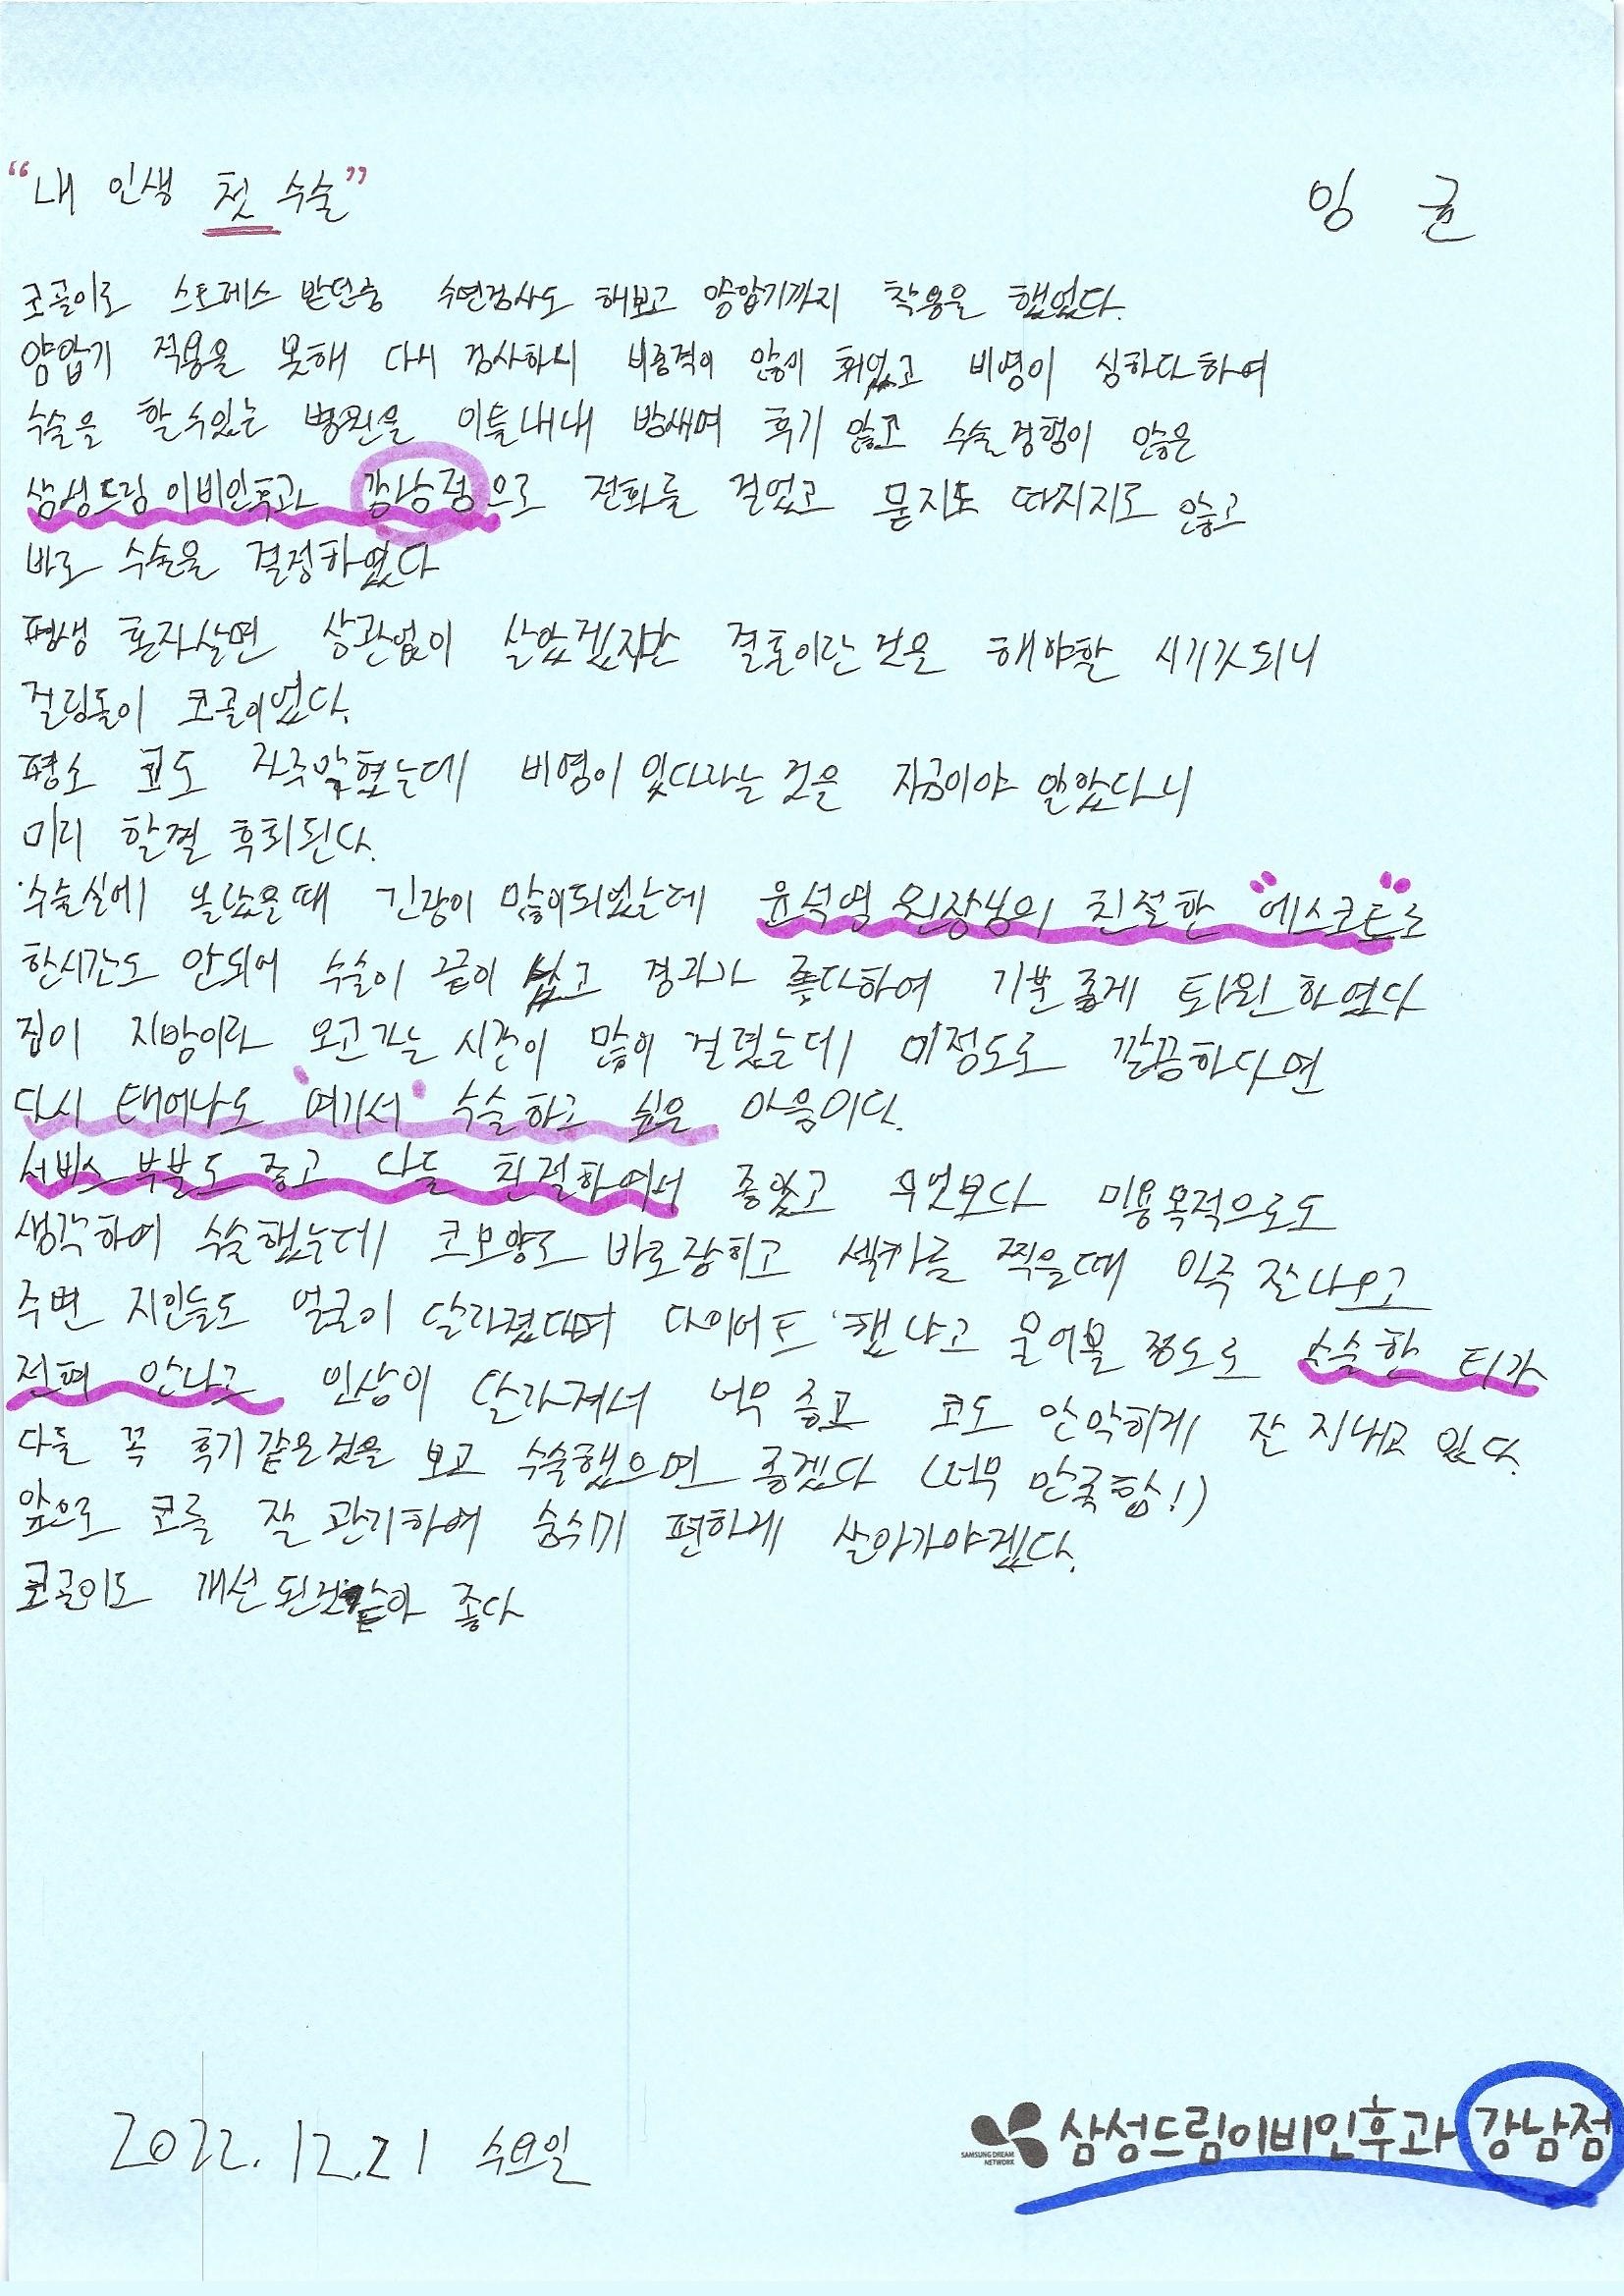 "내 인생 첫 수술"
임 균
코골이로 스트레스 받던중 수면검사도 해보고 양압기까지 착용을 했었다.
양압기 적응을 못해 다시 검사하니 비중격이 많이 휘었고 비염이 심하다하여
수술을 할수있는 병원을 이틀내내 밤새며 후기 많고 수술경험이 많은
삼성드림이비인후과 강남점으로 전화를 걸었고 묻지도 따지지도 않고
바로 수술을 결정하였다
평생 혼자살면 상관없이 살았겠지만 결혼이란것은 해야할 시기가되니
걸림돌이 코골이었다.
평소 코도 자주막혔는데 비염이 있다라는 것을 지금이야 알았다니
미리 할껄 후회된다.
수술실에 누웠을때 긴장이 많이되었는데 윤석영 원장님의 친절한 "에스코트"로
한시간도 안되어 수술이 끝이 났고 경과가 좋다하여 기분좋게 퇴원하였다
집이 지방이라 오고가는 시간이 많이 걸렸는데 이정도로 깔끔하다면
다시 태어나도 "여기서" 수술하고 싶은 마음이다.
서비스부분도 좋고 다들 친절하여서 좋았고 무엇보다 미용목적으로도
생각하여 수술했는데 코모양도 바로잡히고 셀카를 찍을때 아주 잘나오고
주변 지인들도 얼굴이 달라졌다며 다이어트 했냐고 물어볼 정도로 수술한 티가
전혀 안나고 인상이 달라져서 너무 좋고 코도 안막히게 잘 지내고 있다.
다들 꼭 후기같은것을 보고 수술했으면 좋겠다 (너무 만족함!)
앞으로 코를 잘 관리하여 숨쉬기 편하게 살아가야겠다.
코골이도 개선된것같아 좋다
2022.12.21 수요일
SAMSUNG DREAM NETWORK
삼성드림이비인후과 강남점